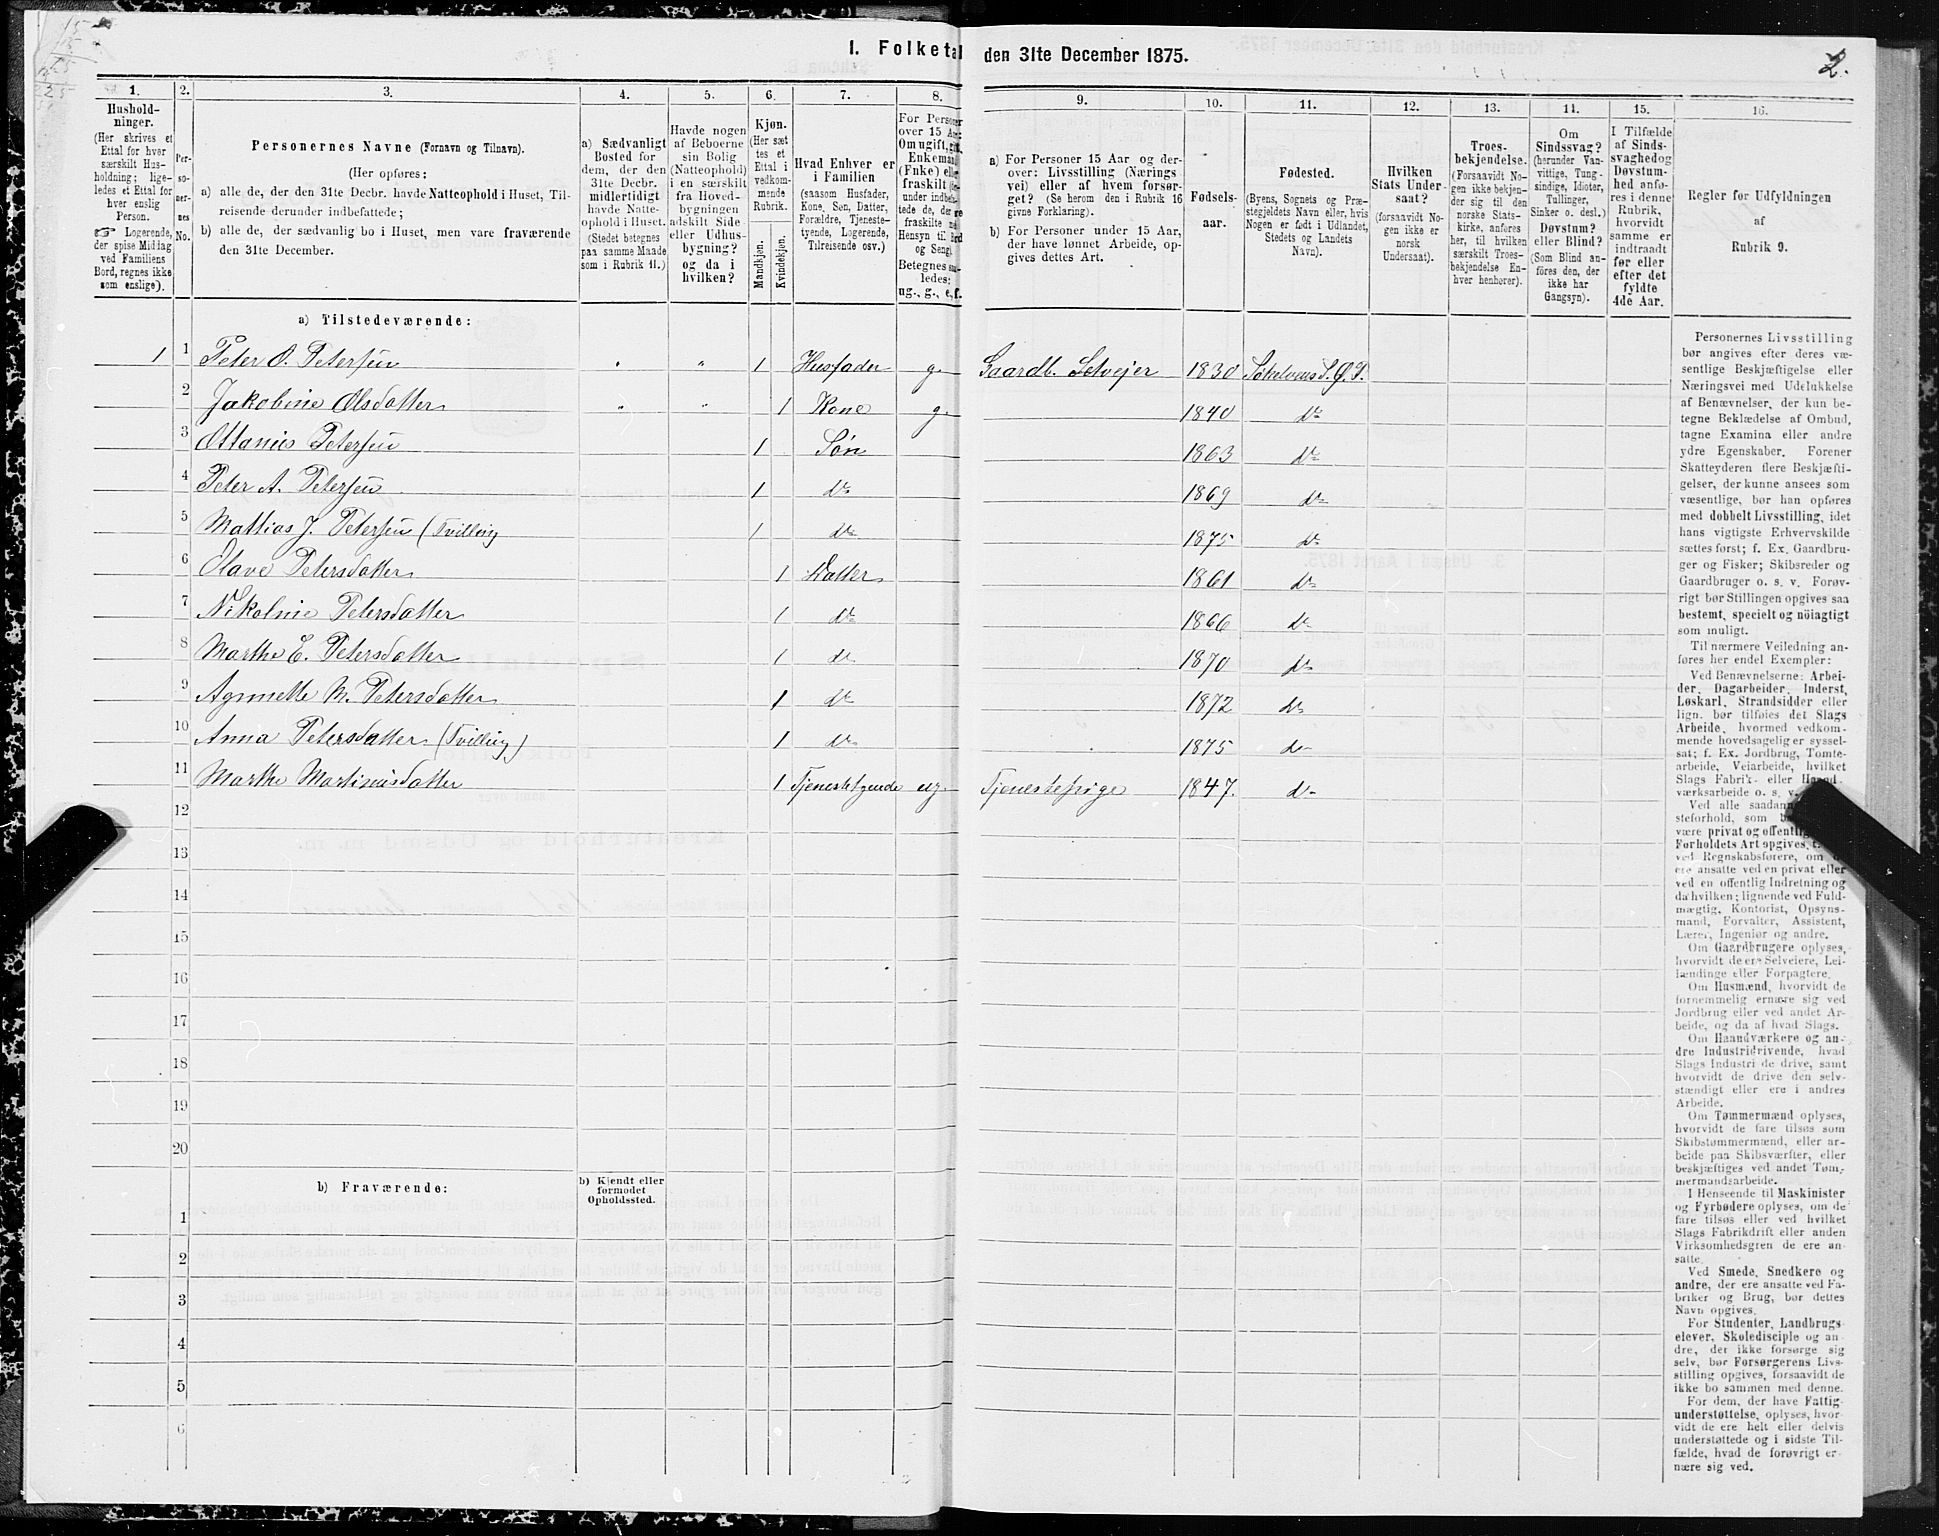 I. Folketal den 31te December 1875.
2.
1.
2.
3.
4.
5.
6.
7.
8.
9.
10.
11.
12.
13.
14.
15.
16.
Hushold-
ninger.
(Her skrives et
Ettal for hver
særskilt Hus-
holdning; lige-
ledes et Ettal for
hver enslig
Person.
☞ Logerende,
der spise Middag
ved Familiens
Bord, regnes ikke
som enslige).
Per-
so-
ner-
nes
No.
Personernes Navne (Fornavn og Tilnavn).
(Her opføres:
a) alle de, der den 31te Decbr. havde Natteophold i Huset, Til-
reisende derunder indbefattede;
b) alle de, der sædvanlig bo i Huset, men vare fraværende
den 31te December.
a) Sædvanligt
Bosted for
dem, der den
31te Decbr.
midlertidigt
havde Natte-
ophold i Huset.
(Stedet betegnes
paa samme Maade
som i Rubrik 11.)
Havde nogen
af Beboerne
sin Bolig
(Natteophold)
i en særskilt
fra Hoved-
bygningen
adskilt Side
eller Udhus-
bygning?
og da i
hvilken?
Kjøn.
(Her sæt
tes et
Ettal i
vedkom-
mende
Rubrik.
Mandkjøn.
Kvindekjøn.
Hvad Enhver er
i Familien
(saasom Husfader,
Kone, Søn, Datter,
Forældre, Tjeneste-
tyende, Logerende,
Tilreisende osv.)
For Personer
over 15 Aar:
Om ugift, gift,
Enkemand
(Enke) eller
fraskilt
ug., g., e, f.
a) For Personer 15 Aar og der-
over: Livsstilling (Nærings
vei) eller af hvem forsør-
get? (Se herom den i Rubrik 16
givne Forklaring).
b) For Personer under 15 Aar,
der have lønnet Arbeide, op-
gives dettes Art.
Fødsels-
aar.
Fødested.
(Byens, Sognets og Præ-
stegjeldets Navn eller, hvis
Nogen er født i Udlandet,
Stedets og Landets
Navn).
Hvilken
Stats Under-
saat?
(forsaavidt No-
gen ikke er
norsk
Undersaat).
Troes-
bekjendelse.
(Forsaavidt No-
gen ikke bekjen-
der sig til den
norske Stats-
kirke, anføres
her, til hvilken
særskilt Troes-
bekjendelse En-
hver henhører).
Om
Sindssvag?
(herunder Van-
vittige, Tung-
sindige, Idioter,
Tullinger,
Sinker o. desl.)
Døvstum?
eller Blind?
(Som Blind an-
føres den, der
ikke har
Gangsyn).
I Tilfælde
af Sinds-
svaghed og
Døvstum-
hed anfø-
res i denne
Rubrik,
hvorvidt
samme er
indtraadt
før eller
efter det
fyldte
4de Aar.
Regler før Udfyldningen
af
Rubrik 9.
a) Tilstedeværende:
1 1 Peter O. Petersen " " 1 Husfader g. Gaardb. Selvejer 1830
2 Jakobine Olsdatter " " 1 Kone g. 1840 do
3 Ottanius Petersen 1 Søn 1863 do
4 Peter A. Petersen 1 do 1869 do
5 Mattias J. Petersen (Tvilling 1 do 1875 do
6 Olave Petersdatter 1 Datter 1861 do
7 Nikoline Petersdatter 1 do 1866 do
8 Marthe E. Petersdatter 1 do 1870 do
9 Agnnette M. Petersdatter 1 do 1872 do
10 Anna Petersdatter (Tvilling) 1 do 1875 do
11 Marthe Martinusdatter 1 Tjenestetyende ug. Tjenestepige 1847. do
12
13
14
15
16
17
18
19
20
b) Fraværende:
b) Kjendt eller
formodet
Opholdssted.
1
2
3
4
5
6
Personernes Livsstilling
bør angives efter deres væ-
sentlige Beskjæftigelse eller
Næringsvei med Udelukkelse
af Benævnelser, der kun be-
tegne Beklædelse af Ombud,
tagne Examina eller andre
ydre Egenskaber. Forener
Skatteyderen flere Beskjæfti-
gelser, der kunne ansees som
væsentlige, bør han opføres
med dobbelt Livsstilling, idet
hans vigtigste Erhvervskilde
sættes først; f. Ex. Gaardbru-
ger og Fisker; Skibsreder og
Gaardbruger o. s. v. Forøv-
rigt bør Stillingen opgives saa
bestemt, specielt og nøiagtigt
som muligt.
Til nærmere Veiledning an-
føres her endel Exempler:
Ved Benævnelserne: Arbei-
der, Dagarbeider, Inderst,
Løskarl, Strandsidder eller
lign. bør tilføies det Slags
Arbeide, hvormed vedkom-
mende hovedsagelig er syssel-
sat; f. Ex. Jordbrug, Tomte-
arbeide, Veiarbeide, hvilket
Slags Fabrik- eller Haand-
værksarbeide o. s. v.
Ved alle saadanne
steforhold, som
være privat og offentlig,
Forholdets Art opgives,
ved Regnskabsførere, om
ere ansatte ved en privat eller
ved en offentlig Indretning og
da hvilken; lignende ved Fuld-
mægtig, Kontorist, Opsyns-
mand, Forvalter, Assistent,
Lærer, Ingeniør og andre.
Om Gaardbrugere oplyses,
hvorvidt de ere Selveiere, Lei-
lændinge eller Forpagtere.
Om Husmænd, hvorvidt de
fornemmelig ernære sig ved
Jordbrug eller ved andet Ar-
beide, og da af hvad Slags.
Om Haandværkere og an-
dre Industridrivende, hvad
Slags Industri de drive, samt
hvorvidt de drive den selv-
stændigt eller ere i andres
Arbeide.
Om Tømmermænd oplyses,
hvorvidt de fare tilsøs som
Skibstømmermænd, eller ar-
beide paa Skibsværfter, eller
beskjæftiges ved andet Tøm-
mermandsarbeide.
I Henseende til Maskinister
og Fyrbødere oplyses, om de
fare tilsøs eller ved hvilket
Slags Fabrikdrift eller anden
Virksomhedsgren de ere an-
satte.
Ved Smede, Snedkere og
andre, der ere ansatte ved Fa-
briker og Brug, bør dettes
Navn opgives.
For Studenter, Landbrugs-
elever, Skoledisciple og an-
dre, der ikke forsørge sig
selv, bør Forsørgerens Livs-
stilling opgives, forsaavidt de
ikke bo sammen med denne.
For dem, der have Fattig-
understøttelse, oplyses, hvor-
vidt de ere helt eller delvis
understøttede og i sidste Til-
fælde, hvad de forøvrigt er-
nære sig ved.